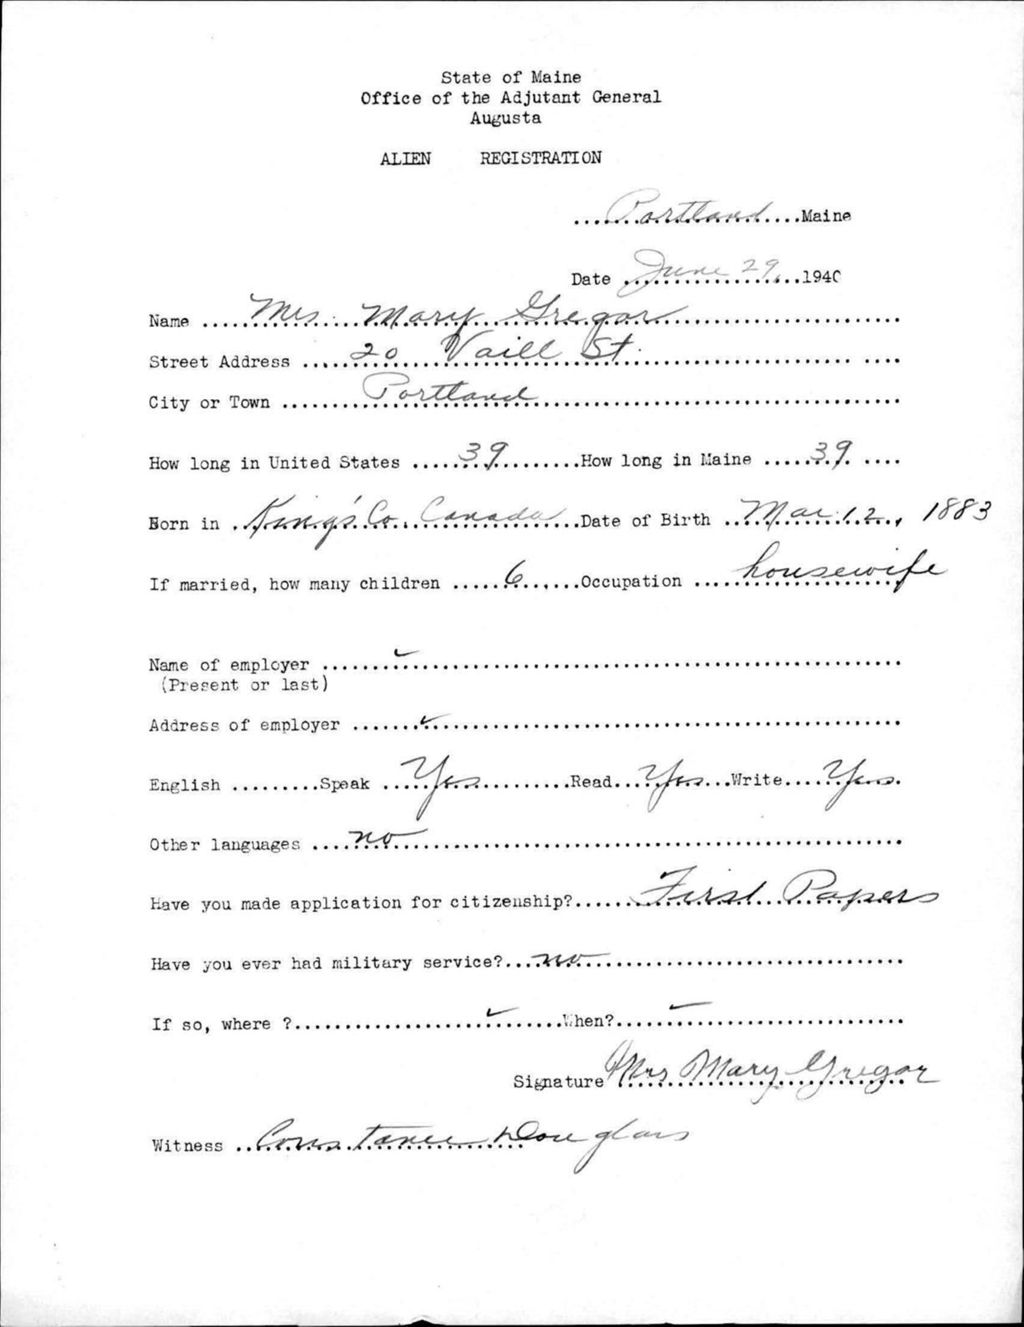 State of Maine
Office of the Adjutant General
Augusta
ALIEN REGISTRATION
......Portland......Maine
Date ..June 29...1940
Name ......Mrs. Mary Gregor......
Street Address ......20 Vaill St.......
City or Town ......Portland......
How long in United States ......39......How long in Maine ......39......
Born in ..King's Co., Canada...Date of Birth ..Mar. 12., 1883
If married, how many children ......6......Occupation ....housewife
Name of employer ......✓......
(Present or last)
Address of employer ......✓......
English .........Speak .....Yes..........Read...Yes...Write....Yes.
Other languages ....no......
Have you made application for citizenship?......First Papers
Have you ever had military service?....no......
If so, where ?......✓......When?......✓......
Signature Mrs Mary Gregor
Witness ..Constance Douglass